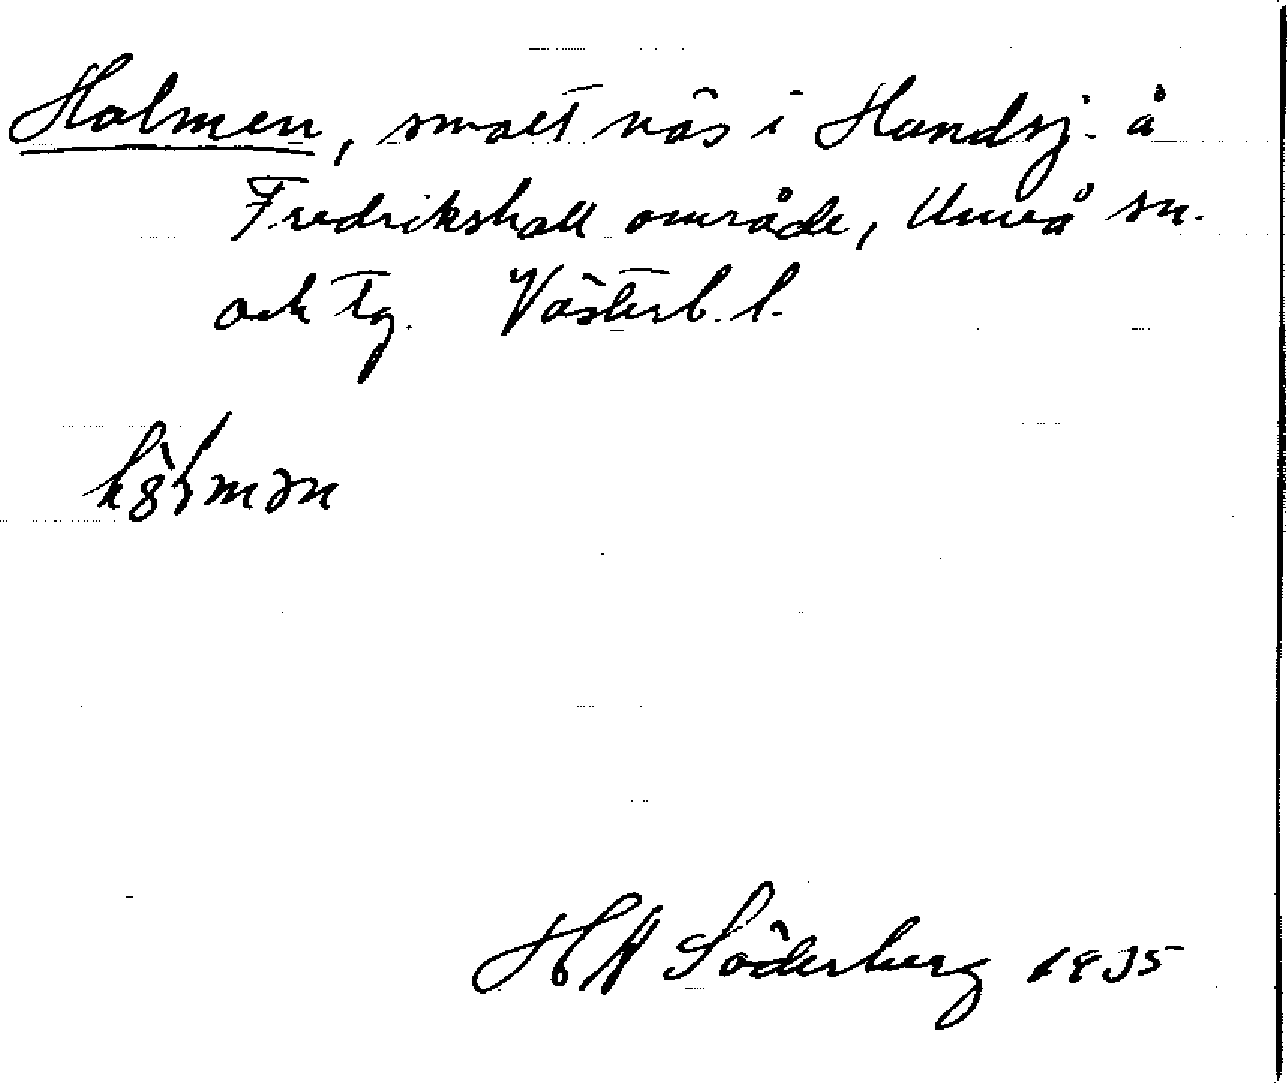 Holmen, smalt näs i Handsj. å
Fredrikshall område, Umeå sn.
och tg. Västerb. l.
HA Söderberg 1935